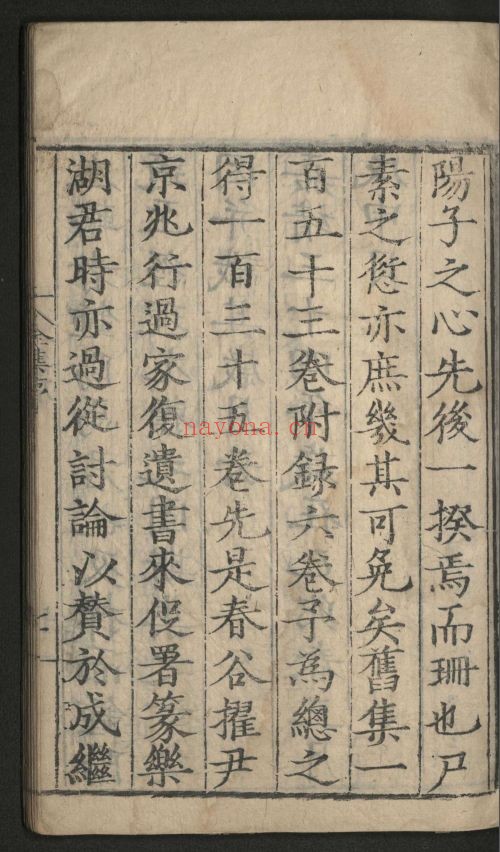 陽子之心先後一揆焉而珊也尸
素之愆亦庶幾其可免矣舊集一
百五十三卷附録六卷予為總之
得一百三十五卷先是春谷擢尹
京兆行過家復遺書來促署篆樂
湖君時亦過從討論以賛於成繼
全集序
nayona.cn